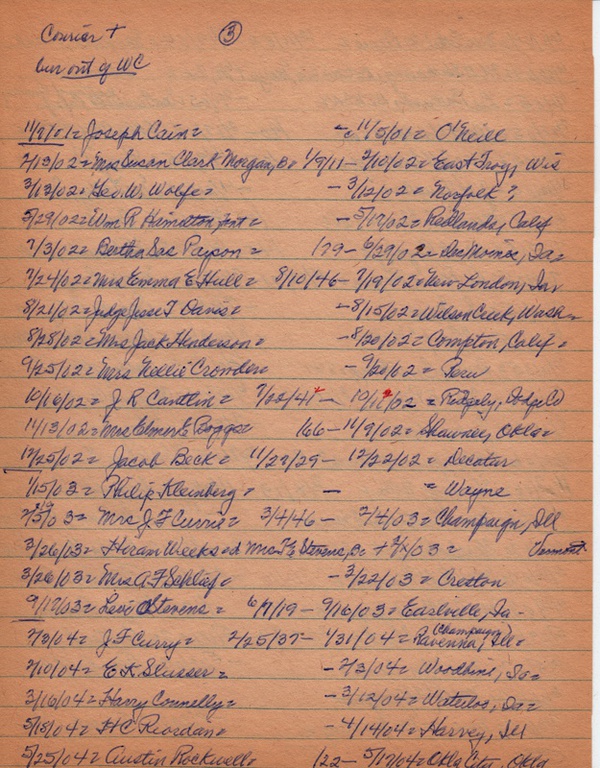 Courier + ③
but out of WC
11/7/01 = Joseph Cain = - 11/5/01 = O'Neill
2/13/02 = Mrs Susan Clark Morgan, B = 1/9/11 - 2/10/02 = East Troy, Wis
3/13/02 = Geo. W. Wolfe = - 3/12/02 = Norfolk ?
5/29/02 = Wm R Hamilton = - 5/17/02 = Redlands, Calif
7/3/02 = Bertha Payson = 179 - 6/29/02 = Des Moines, Ia =
7/24/02 = Mrs Emma E Hull = 8/10/46 - 7/19/02 = New London, Ia
8/21/02 = Judge Jesse T Davis = - 8/15/02 = Wilson Creek, Wash =
8/28/02 = Mrs Jack Henderson = - 8/20/02 = Compton, Calif =
9/25/02 = Mrs Nellie Crowder = - 9/20/02 = Peru
10/16/02 = J R Cantlin = 7/22/41 - 10/11/02 = Ridgely, Dodge Co
11/13/02 = Mrs Elmer E Boggs = 166 - 11/9/02 = Shawnee, Okla =
12/25/02 = Jacob Beck = 11/27/29 - 12/22/02 = Decatur
1/15/03 = Philip Kleinberg = - = Wayne
Mrs J F Currie = 3/4/46 - 2/4/03 = Champaign, Ill
3/26/03 = Hiram Weeks = d Mrs Stevens, B = = Vermont
3/26/03 = Mrs A F Schlaf = - 3/22/03 = Creston
9/17/03 = Levi Stevens = 6/7/19 - 9/16/03 = Earlville, Ia -
2/3/04 = J F Curry = 2/25/37 - 1/31/04 = Ravenna, (Champaign) Ill =
2/10/04 = E K Slusser = - 2/3/04 = Woodbine, Ia =
3/16/04 = Harry Connelly = - 3/12/04 = Waterloo, Ia =
5/18/04 = H C Reordan = - 4/14/04 = Harvey, Ill
5/25/04 = Austin Rockwell = 122 - 5/17/04 = Okla City, Okla